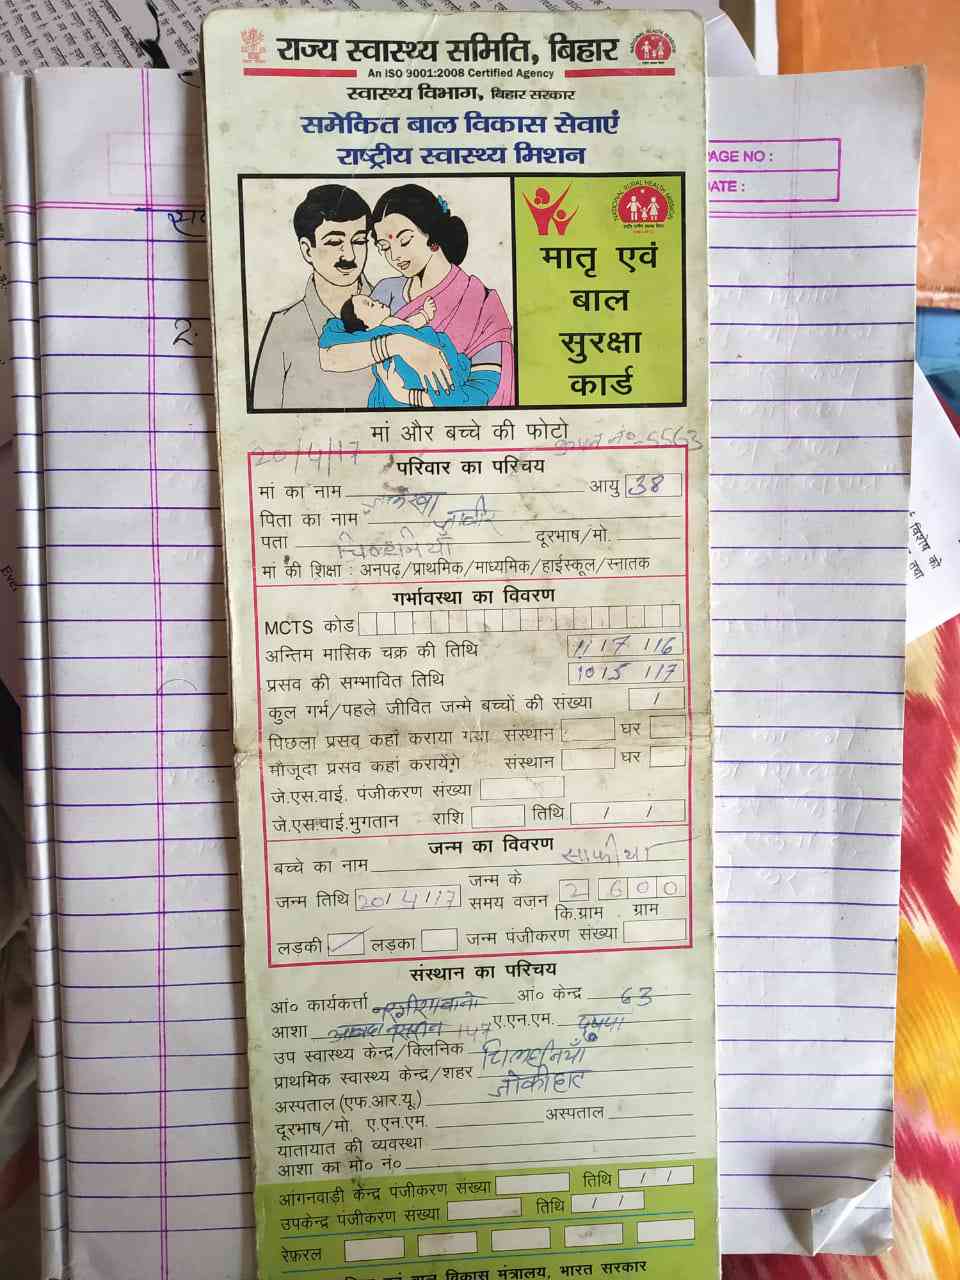 राज्य स्वास्थ्य समिति, बिहार
An ISO 9001:2008 Certified Agency
स्वास्थ्य विभाग, बिहार सरकार
समेकित बाल विकास सेवाएं
राष्ट्रीय स्वास्थ्य मिशन
PAGE NO :
DATE :
NATIONAL RURAL HEALTH MISSION
मातृ एवं
बाल
सुरक्षा
कार्ड
2.
मां और बच्चे की फोटो
20/4/17 नं०-5563
परिवार का परिचय
मां का नाम आयु 38
पिता का नाम
पता चिल्हनियाँ दूरभाष/मो.
मां की शिक्षा : अनपढ़/प्राथमिक/माध्यमिक/हाईस्कूल/स्नातक
गर्भावस्था का विवरण
MCTS कोड
अन्तिम मासिक चक्र की तिथि 1/7/16
प्रसव की सम्भावित तिथि 10/5/17
कुल गर्भ/पहले जीवित जन्मे बच्चों की संख्या 1
पिछला प्रसव कहां कराया गया संस्थान घर
मौजूदा प्रसव कहां करायेंगे संस्थान घर
जे.एस.वाई. पंजीकरण संख्या
जे.एस.वाई.भुगतान राशि तिथि / /
जन्म का विवरण
बच्चे का नाम साफीया
जन्म तिथि 20/4/17 जन्म के समय वजन 2 600
कि.ग्राम ग्राम
लड़की लड़का जन्म पंजीकरण संख्या
संस्थान का परिचय
आं० कार्यकर्त्ता आं० केन्द्र 63
आशा 147 ए.एन.एम. पुष्पा
उप स्वास्थ्य केन्द्र/क्लिनिक चिल्हनियाँ
प्राथमिक स्वास्थ्य केन्द्र/शहर जोकीहाट
अस्पताल (एफ.आर.यू.)
दूरभाष/मो. ए.एन.एम. अस्पताल
यातायात की व्यवस्था
आशा का मो० नं०
आंगनवाड़ी केन्द्र पंजीकरण संख्या तिथि / /
उपकेन्द्र पंजीकरण संख्या तिथि / /
रेफ़रल
एवं बाल विकास मंत्रालय, भारत सरकार